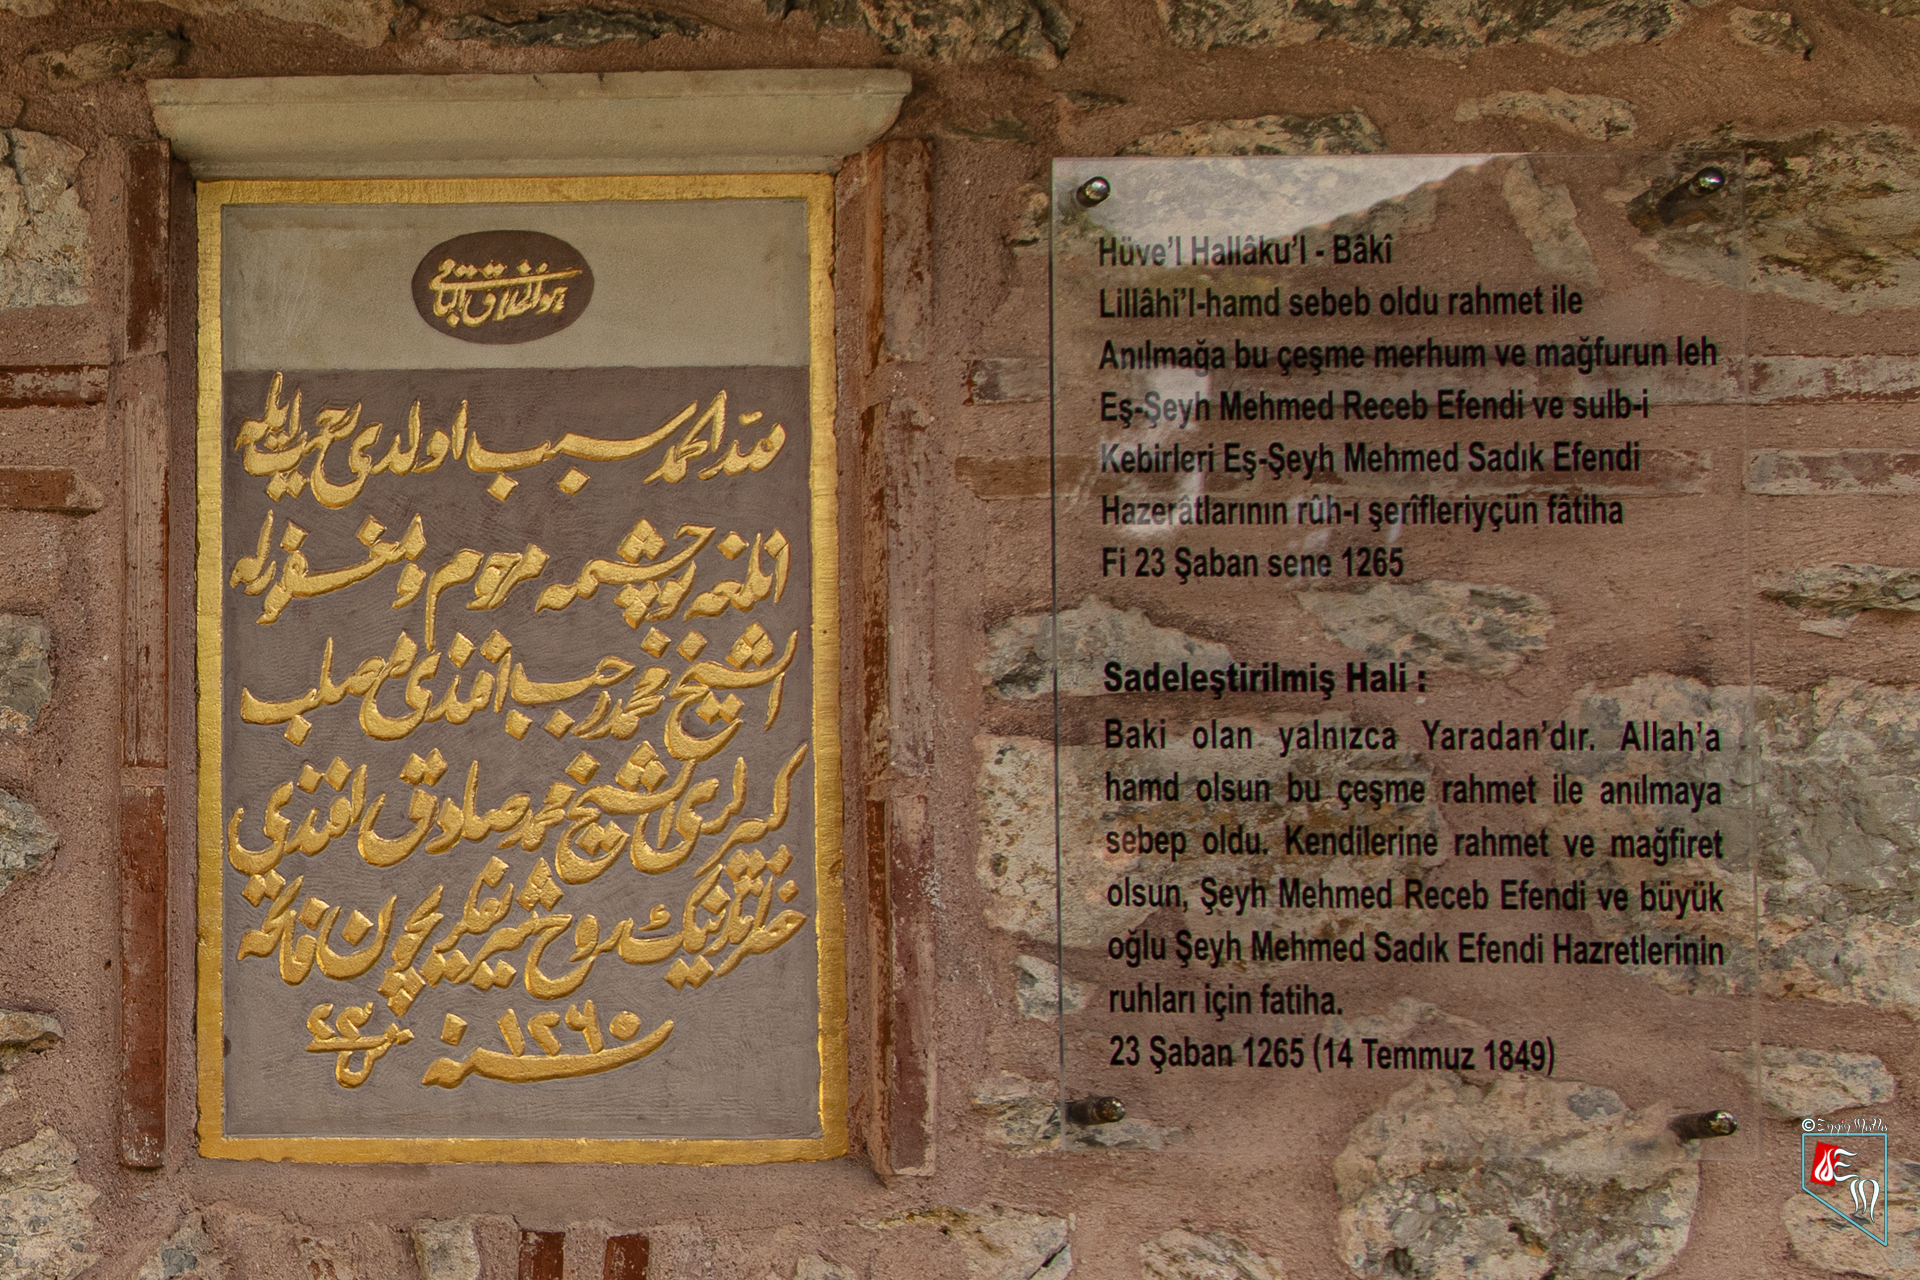 هو الخلاق الباقی
لله الحمد سبب اولدی رحمت ایله
اکلمغه بو چشمه مرحوم و مغفور له
الشیخ محمد رجب افندی صلب
کبیرلری الشیخ محمد صادق افندی
حضراتلرینک روح شریفلریچون فاتحه
سنه ١٢٦٥
Hüve’l Hallâku’l - Bâkî
Lillâhi’l-hamd sebeb oldu rahmet ile
Anılmağa bu çeşme merhum ve mağfurun leh
Eş-Şeyh Mehmed Receb Efendi ve sulb-i
Kebirleri Eş-Şeyh Mehmed Sadık Efendi
Hazerâtlarının rûh-ı şerîfleriyçün fâtiha
Fi 23 Şaban sene 1265
Sadeleştirilmiş Hali :
Baki olan yalnızca Yaradan’dır. Allah’a
hamd olsun bu çeşme rahmet ile anılmaya
sebep oldu. Kendilerine rahmet ve mağfiret
olsun, Şeyh Mehmed Receb Efendi ve büyük
oğlu Şeyh Mehmed Sadık Efendi Hazretlerinin
ruhları için fatiha.
23 Şaban 1265 (14 Temmuz 1849)